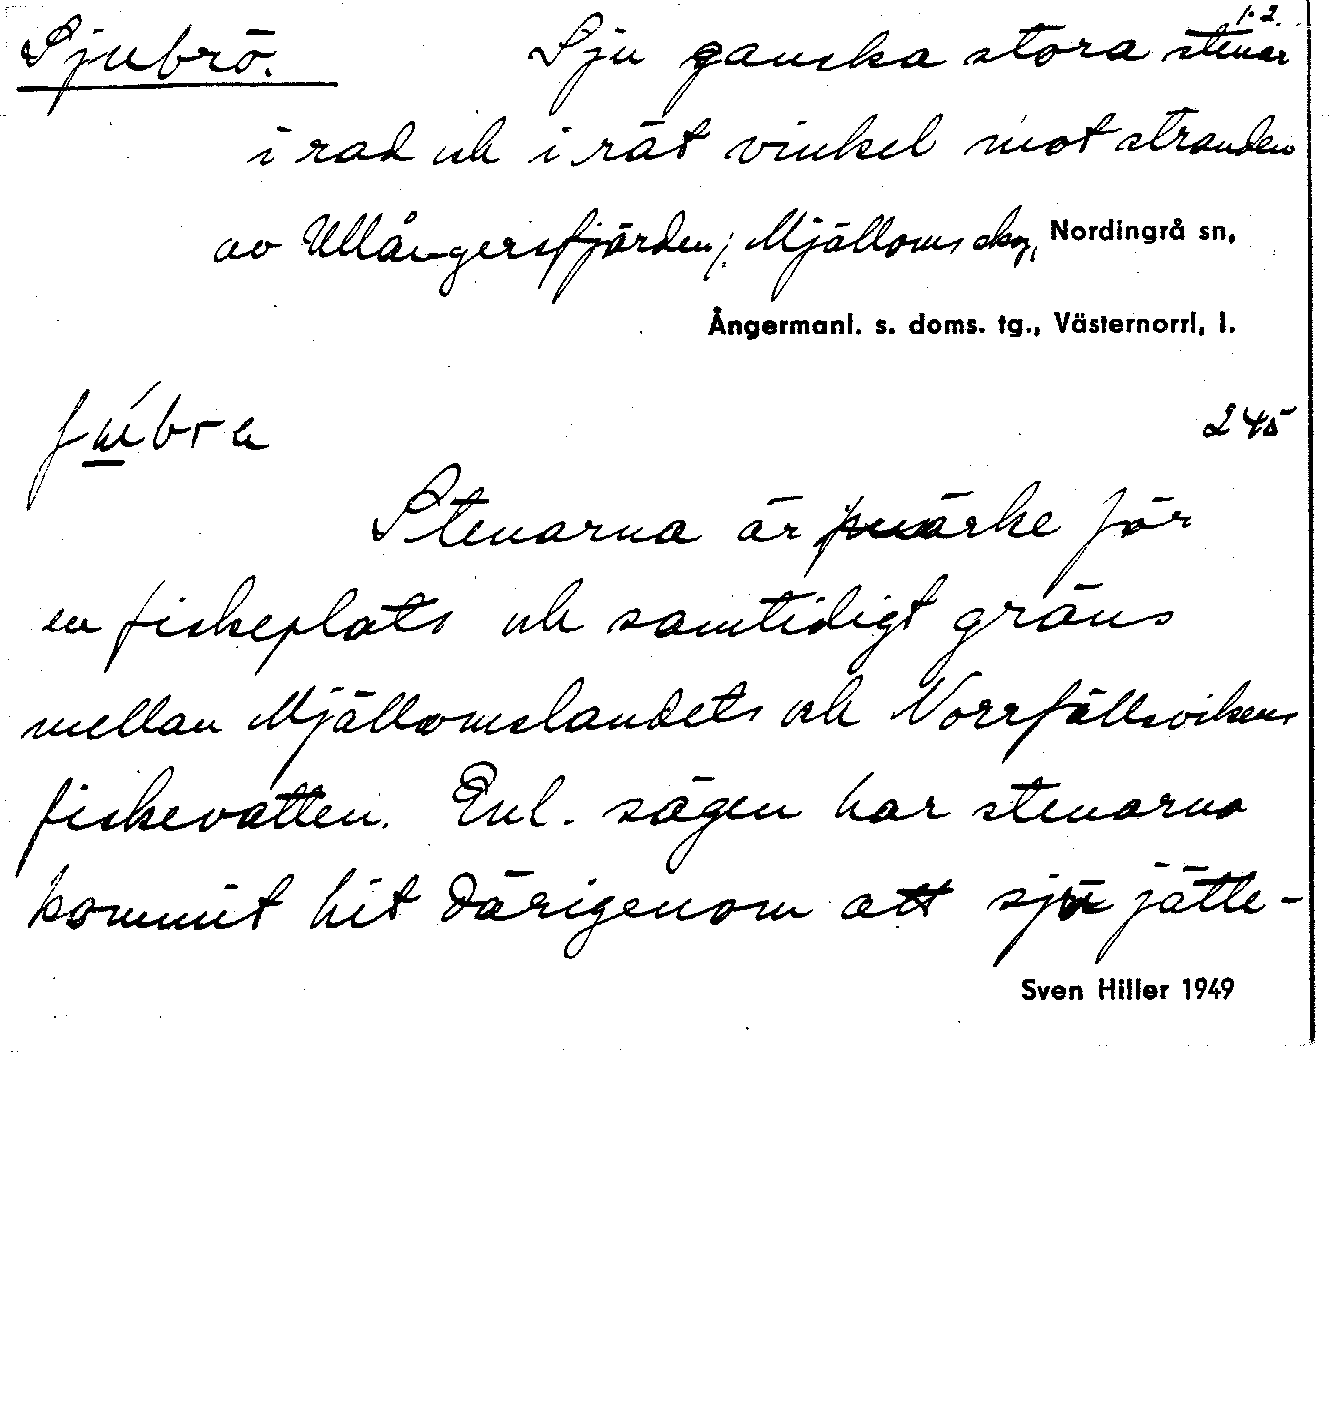 1.2.
Sjubrö. Sju ganska stora stenar
i rad och i rät vinkel mot stranden
av Ullångersfjärden; Mjälloms skog, Nordingrå sn,
Ångermanl. s. doms. tg., Västernorrl. l.
245
Stenarna är märke för
en fiskeplats och samtidigt gräns
mellan Mjällomslandets och Norrfällsvikens
fiskevatten. Enl. sägen har stenarna
kommit hit därigenom att sju jätte-
Sven Hiller 1949